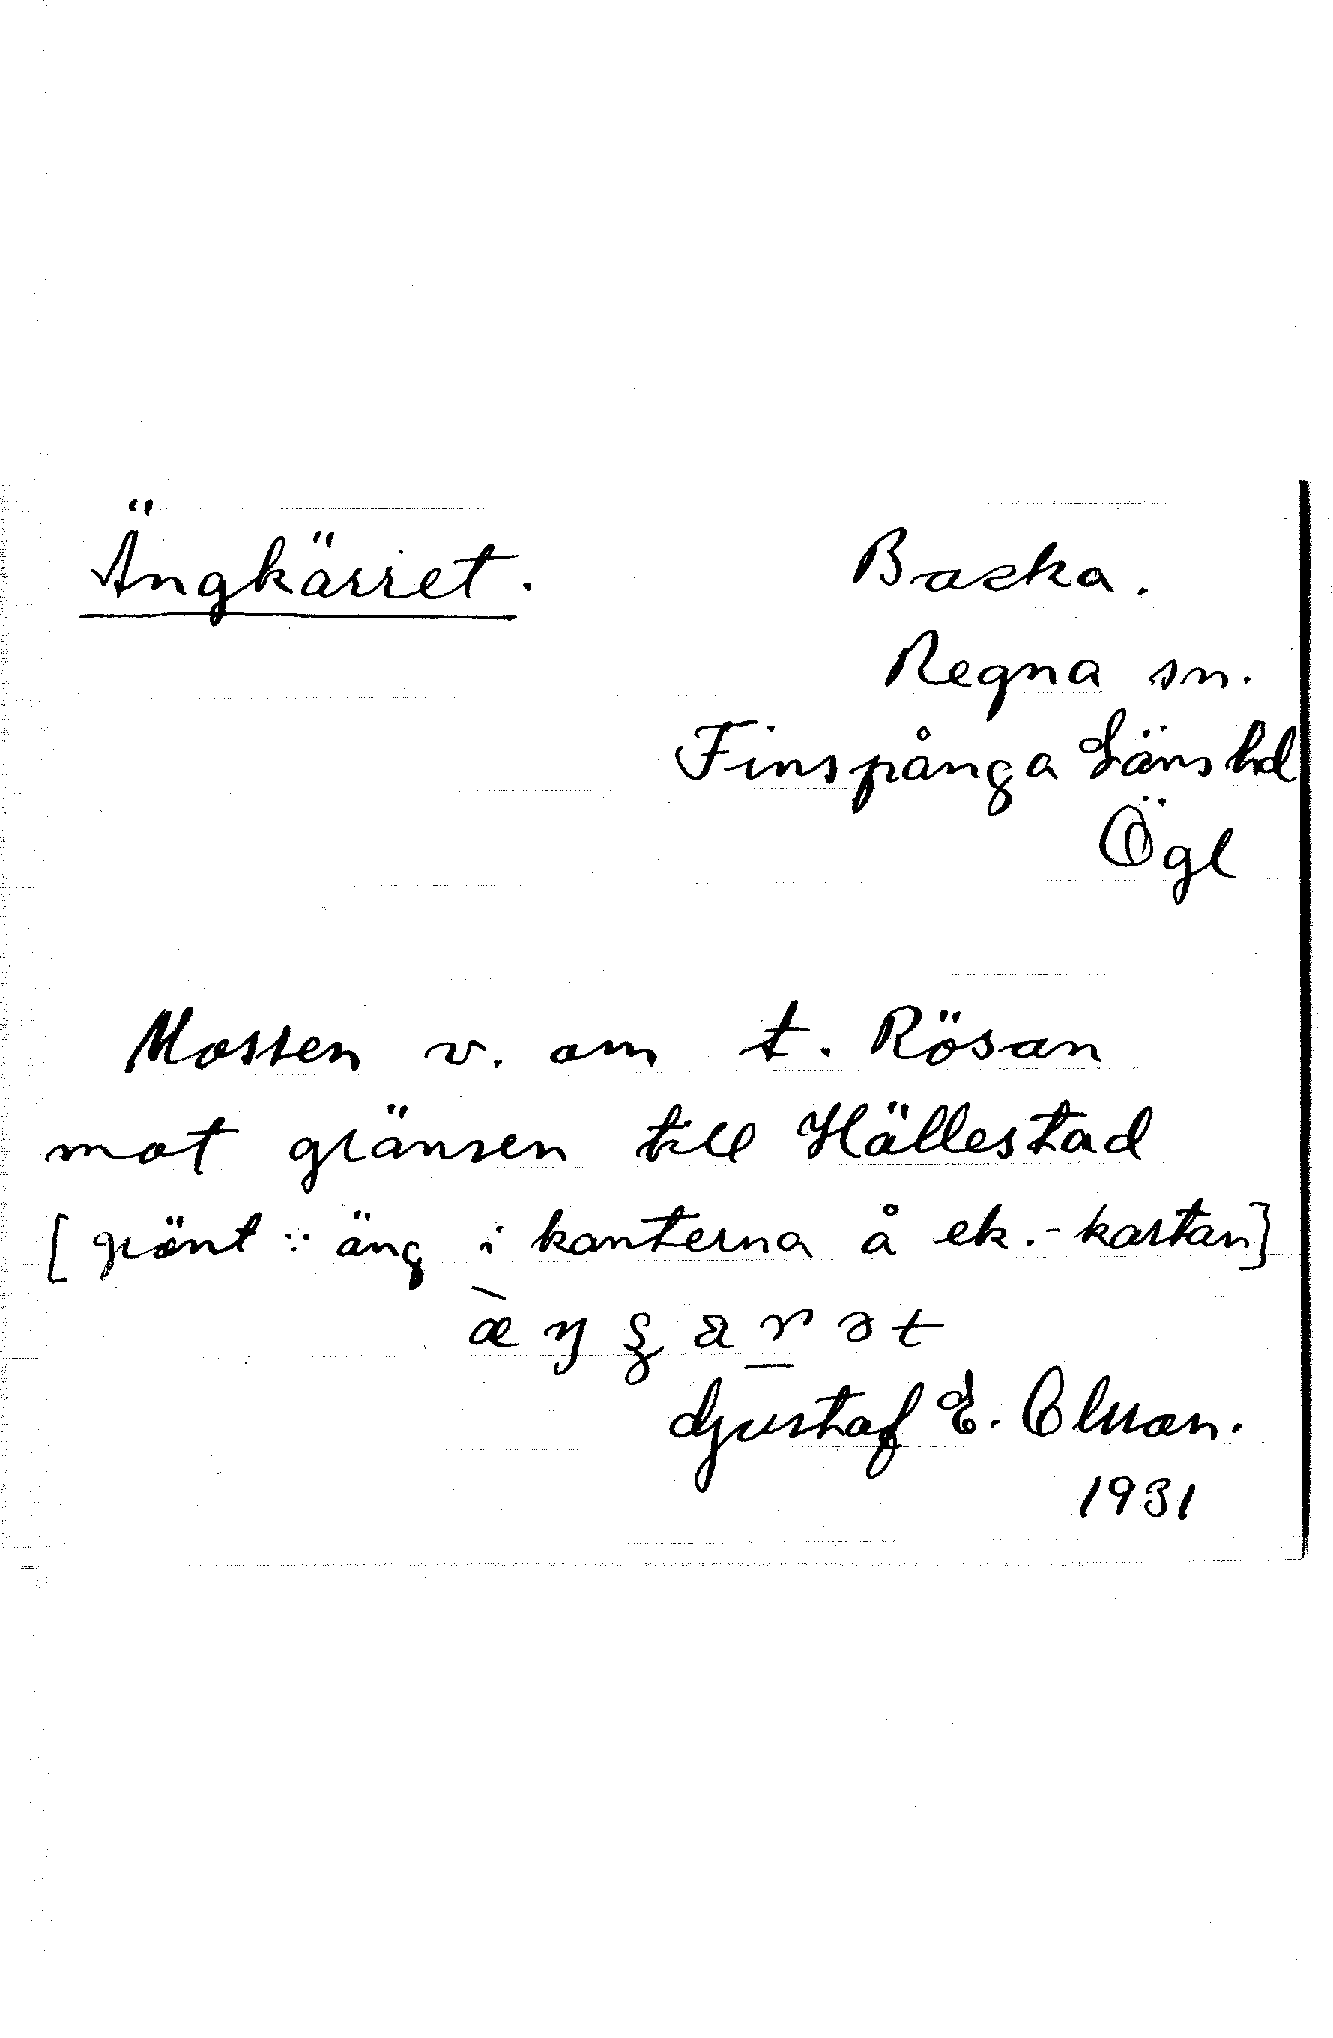 Ängkärret.
Backa.
Regna sn.
Finspånga Läns hd
Ögl
Mossen v. om t. Rösan
mot gränsen till Hällestad
[grönt ∵ äng i kanterna å ek.-kartan]
Gustaf E. Olsson.
1931